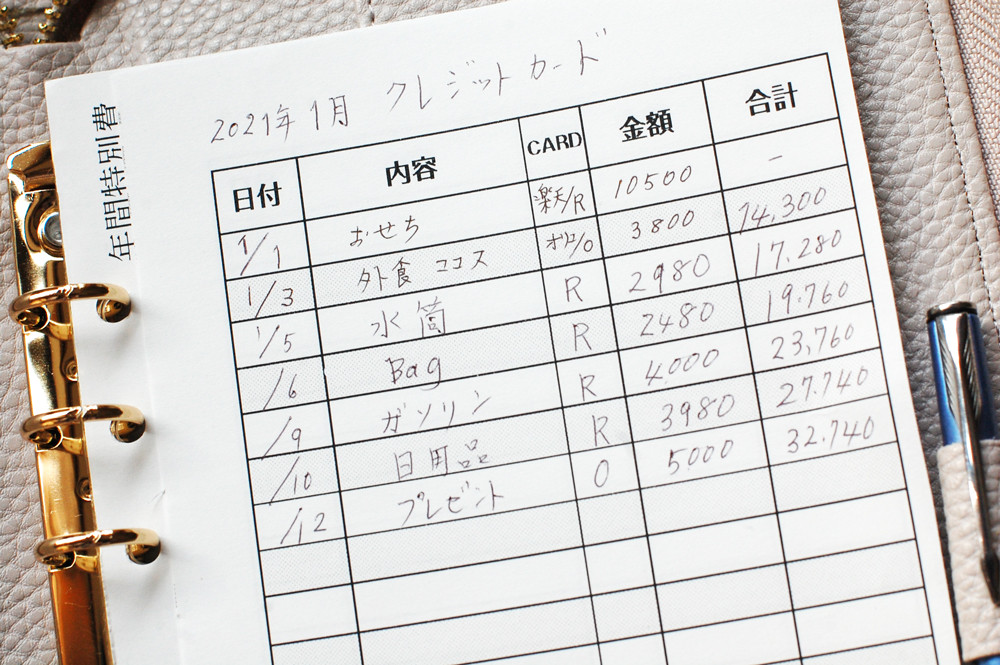 年間特別費
2021年1月 クレジットカード
日付 内容 CARD 金額 合計
1/1 おせち 楽天/R 10500 -
1/3 外食 ココス オリコ/O 3800 14,300
1/5 水筒 R 2980 17.280
/6 Bag R 2480 19.760
/9 ガソリン R 4.000 23,760
/10 日用品 R 3980 27.740
/12 プレゼント O 5000 32.740